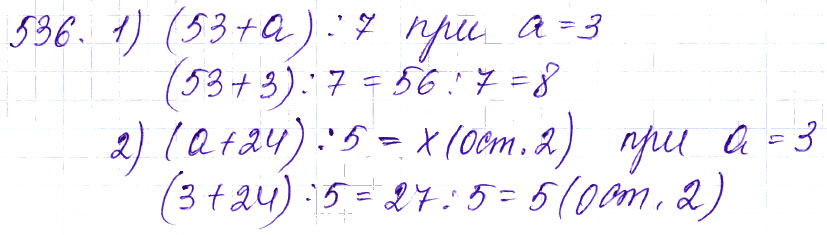 536. 1) (53+a):7 при a=3
(53+3):7=56:7=8
2) (a+24):5=x(ост.2) при a=3
(3+24):5=27:5=5(ост.2)